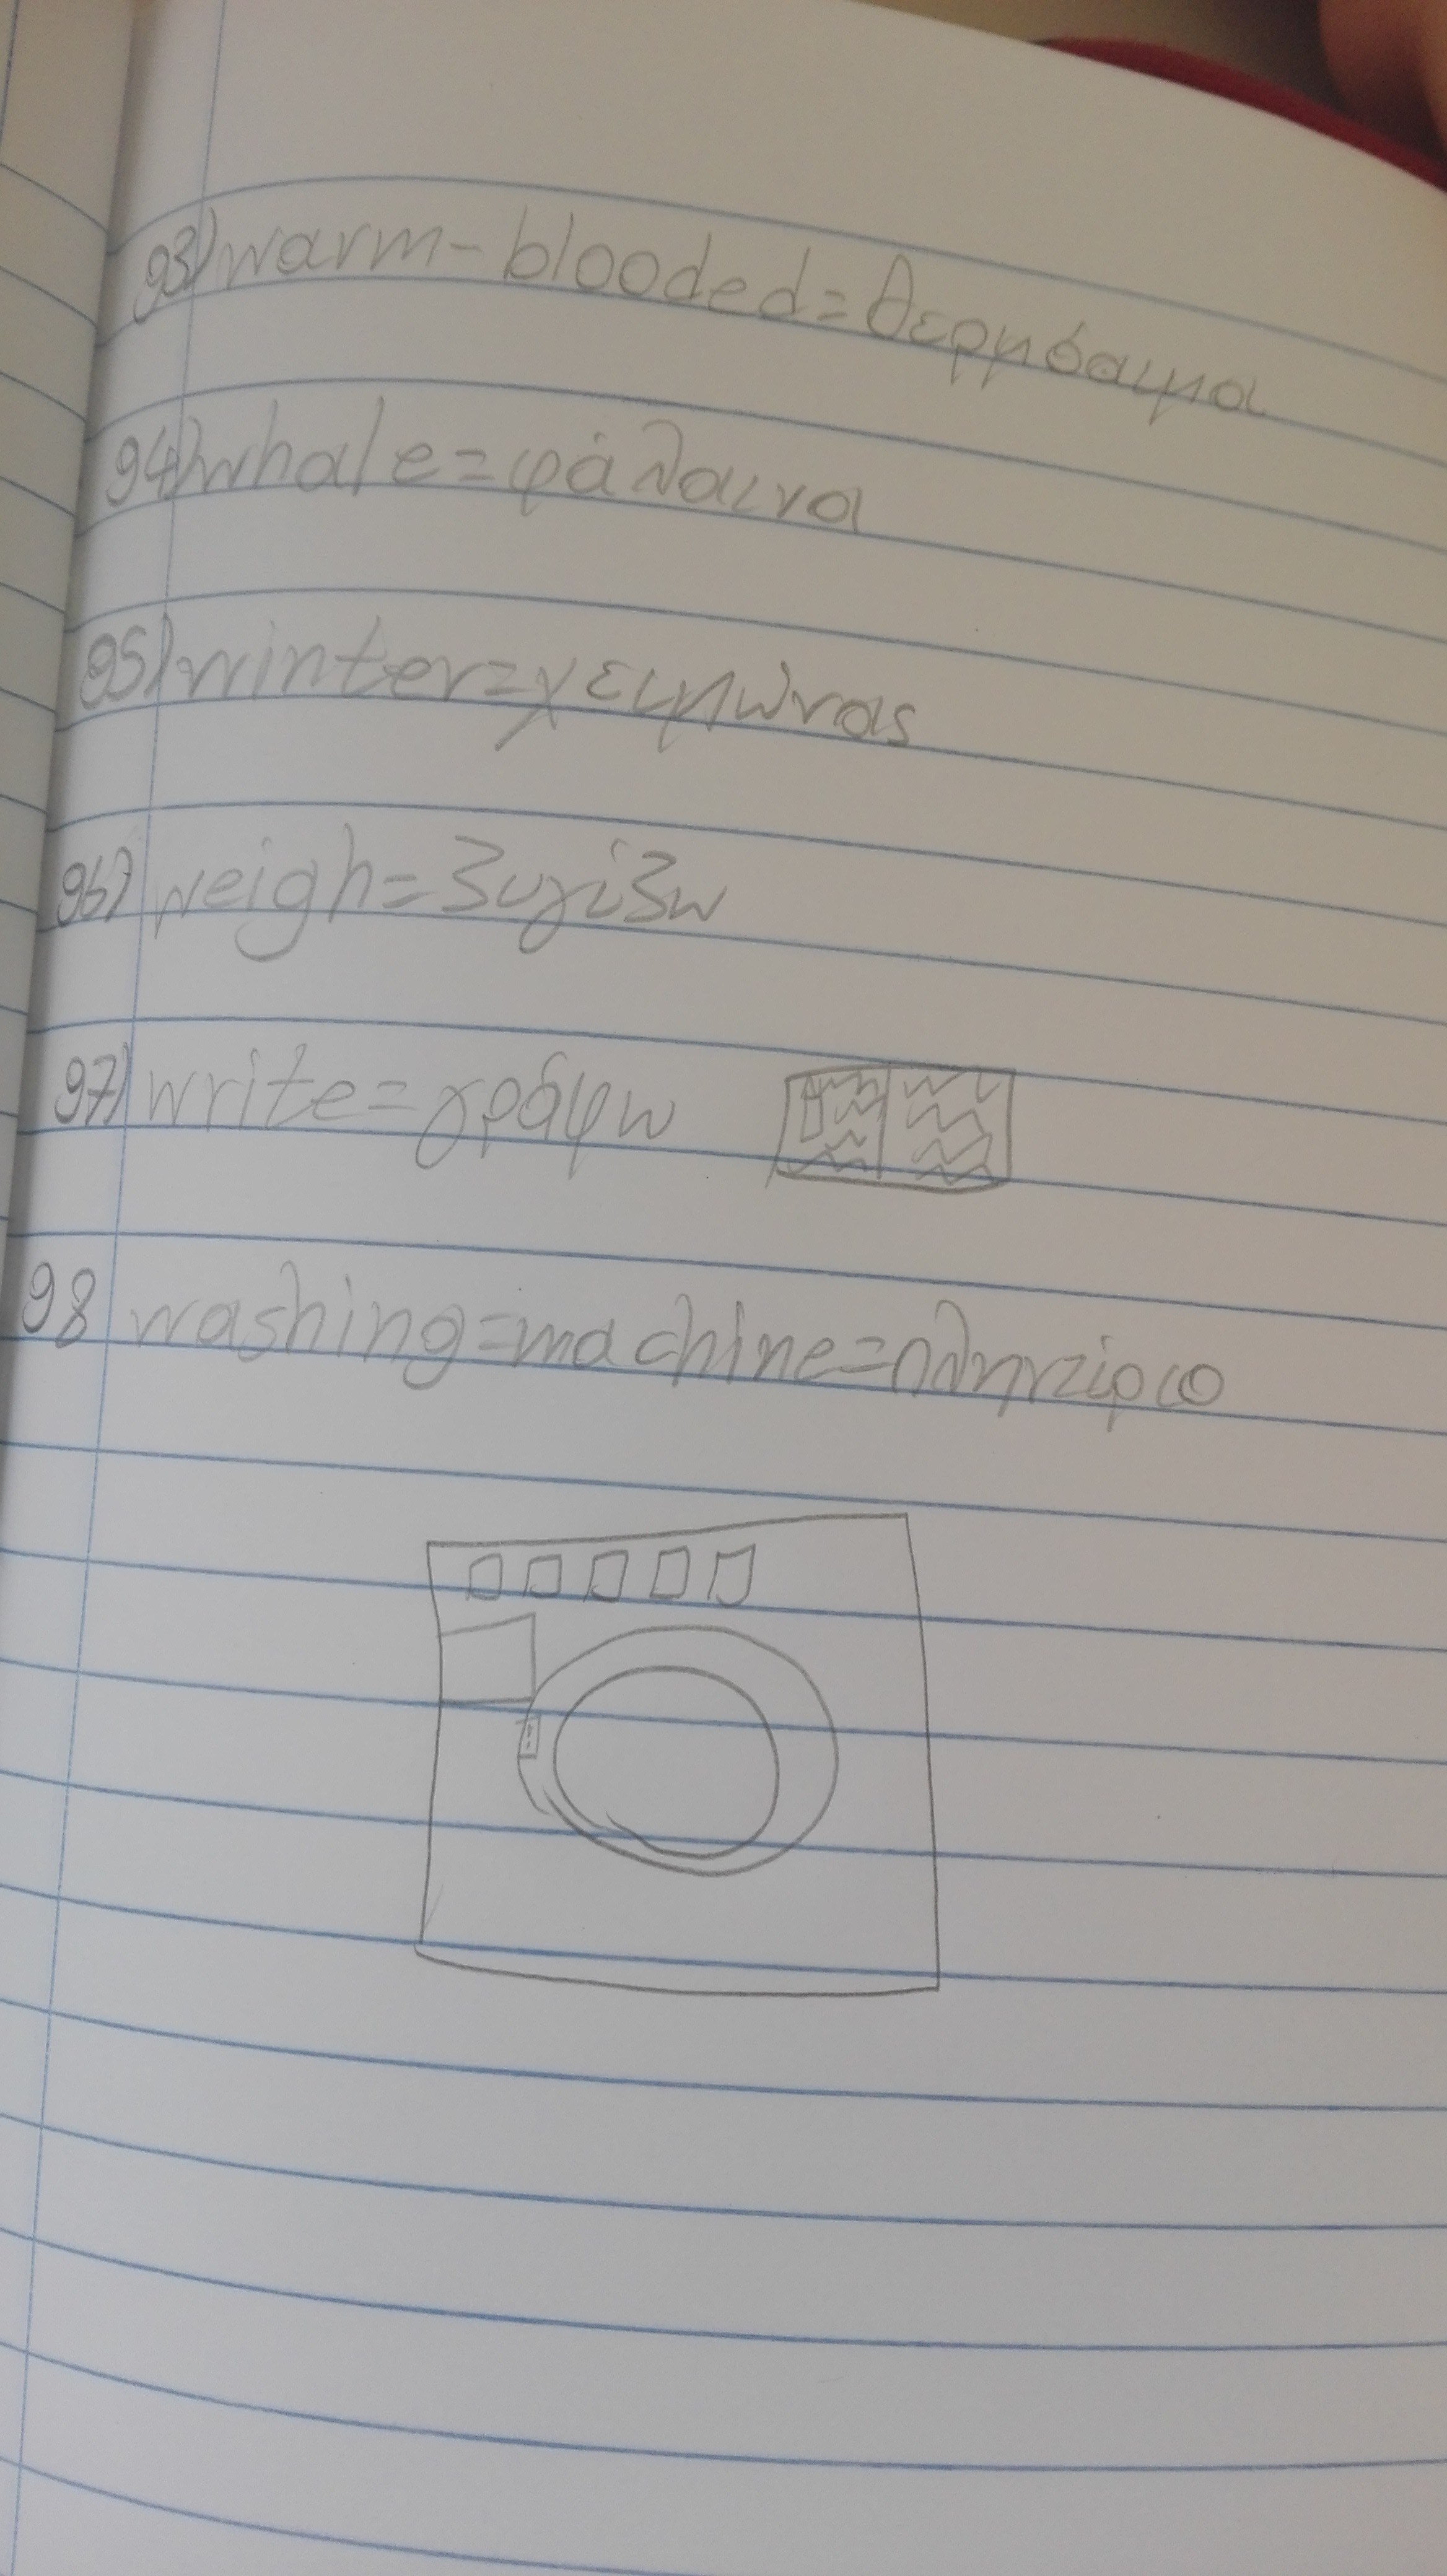 93) warm-blooded=θερμόαιμα
94) whale=φάλαινα
95) winter=χειμώνας
96) weigh=ζυγίζω
97) write=γράφω
98 washing=machine=πληντίριο